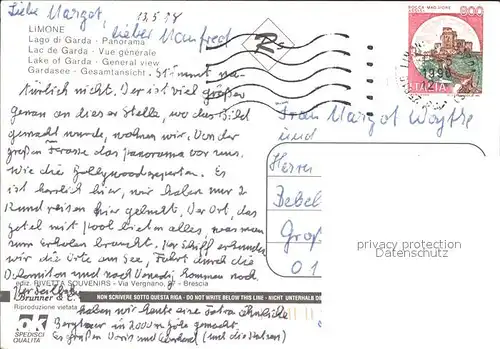 Liebe Margot, 13.5.98
lieber Manfred
LIMONE
Lago di Garda - Panorama
Lac de Garda - Vue générale
Lake of Garda - General view
Gardasee - Gesamtansicht. Stimmt na-
türlich nicht. Der ist viel größer
genau an dieser Stelle, wo das Bild
gemacht wurde, wohnen wir. Von der
großen Terasse das Panorama vor uns.
Wie die Hollywoodexperten. Es
ist herrlich hier, wir haben nur 2
Rundreisen hier gebucht. Der Ort, das
Hotel mit Pool bieten alles, was man
zum erholen braucht. Per Schiff erkunden
wir die Orte am See, Fahrt durch die
Dolomiten und nach Venedig kommen noch.
ediz. RIVETTA SOUVENIRS - Via Vergnano, - Brescia
Per Seilbahn
Brunner & C.
NON SCRIVERE SOTTO QUESTA RIGA - DO NOT WRITE BELOW THIS LINE - NICHT UNTERHALB
Riproduzione vietata
haben wir heute eine Tatra ähnliche
Bergtour in 2000 m Höhe gemacht.
Es grüßen Doris und Gerhard (und die Katzen)
OK
SPEDISCI
QUALITÀ
Rs
ROCCA MAGGIORE
ASSISI
800
ITALIA
Frau Margot
und
Herrn
Bebel
Groß
01
privacy protection
Datenschutz